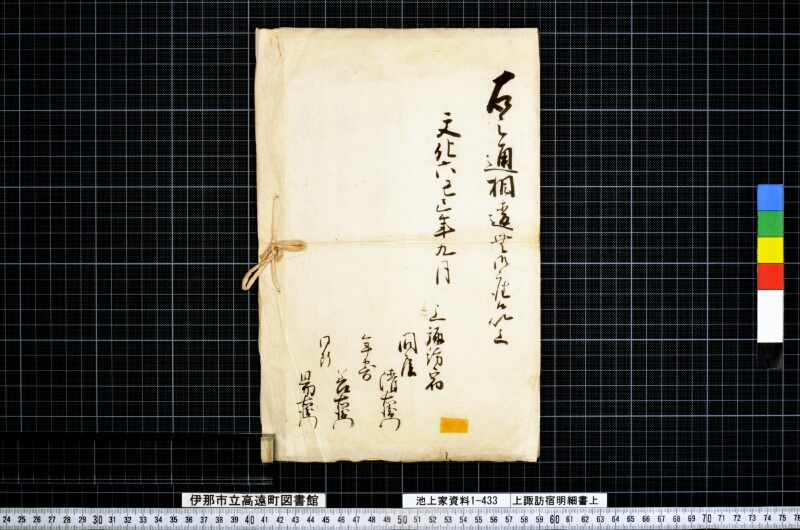 右之通相違無御座候以上
文化六己巳年九月
上諏訪宿
問屋
清右衛門
年寄
善右衛門
同断
易右衛門
伊那市立高遠町図書館
池上家資料1-433
上諏訪宿明細書上
24 25 26 27 28 29 30 31 32 33 34 35 36 37 38 39 40 41 42 43 44 45 46 47 48 49 50 51 52 53 54 55 56 57 58 59 60 61 62 63 64 65 66 67 68 69 70 71 72 73 74 75 76